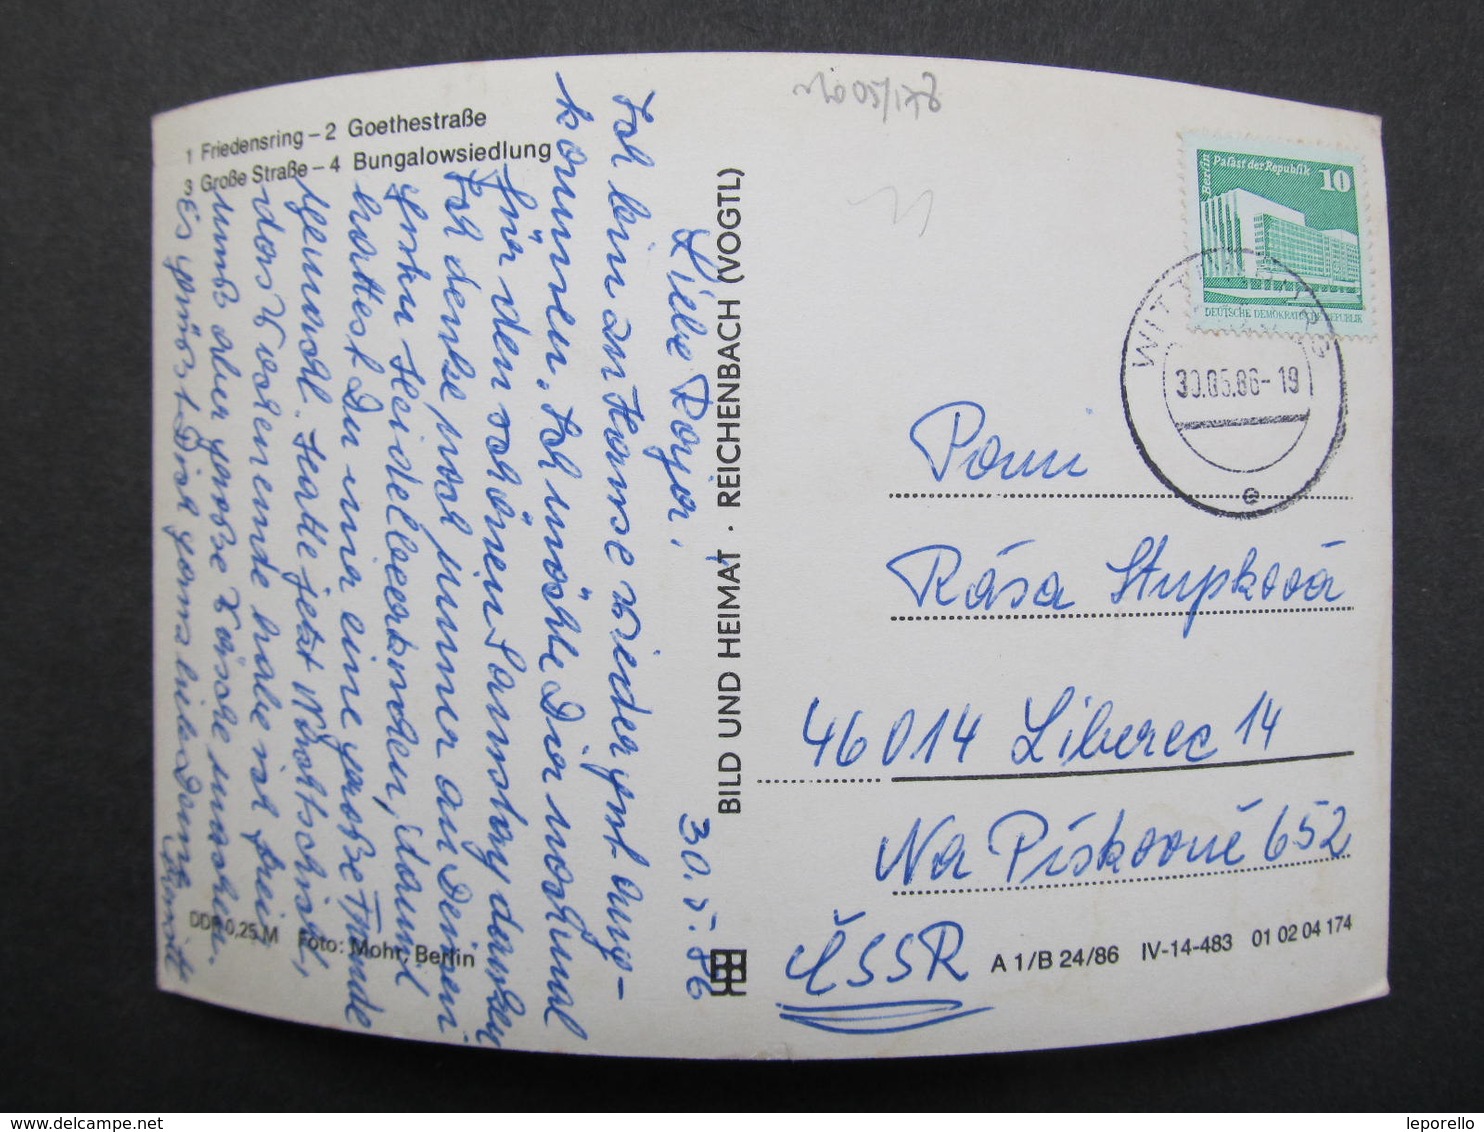 1 Friedensring – 2 Goethestraße
3 Große Straße – 4 Bungalowsiedlung
30.5.86
Liebe Rosja,
Ich bin zu Hause wieder gut ange-
kommen. Ich möchte Dir nochmal
für den schönen Samstag danken
Ich denke noch immer an Deinen
guten Heidelbeerkuchen, damit
hattest Du mir eine große Freude
gemacht. Heute jetzt Nachtschicht,
das Wochenende habe ich frei
muß aber große Wäsche machen.
Es grüßt Dich ganz lieb Deine
DDR 0,25 M Foto: Mohr, Berlin
BILD UND HEIMAT · REICHENBACH (VOGTL)
Berlin
Palast der Republik
10
DEUTSCHE DEMOKRATISCHE REPUBLIK
WITTENBERG
30.05.86-19
e
Pani
Rása Stupková
46014 Liberec 14
Na Pískovně 652
ČSSR
A 1/B 24/86 IV-14-483 01 02 04 174
delcampe.net
leporello